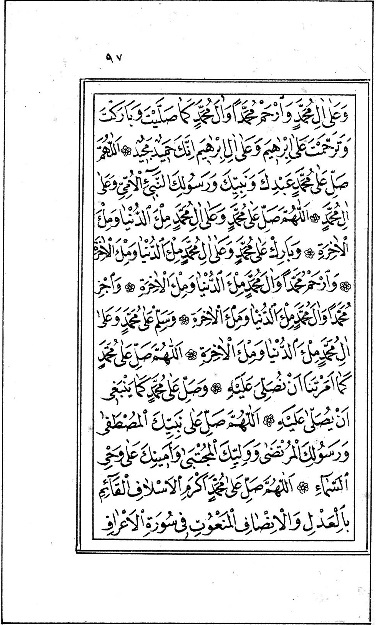 ٩٧
وَعَلٰى اٰلِ مُحَمَّدٍ وَّارْحَمْ مُحَمَّدًا وَّاٰلَ مُحَمَّدٍ كَمَا صَلَّيْتَ وَبَارَكْتَ
وَتَرَحَّمْتَ عَلٰى اِبْرٰهِيْمَ وَعَلٰى اٰلِ اِبْرٰهِيْمَ اِنَّكَ حَمِيْدٌ مَّجِيْدٌ ۞ اَللّٰهُمَّ
صَلِّ عَلٰى مُحَمَّدٍ عَبْدِكَ وَنَبِيِّكَ وَرَسُوْلِكَ النَّبِيِّ الْاُمِّيِّ وَعَلٰى
اٰلِ مُحَمَّدٍ ۞ اَللّٰهُمَّ صَلِّ عَلٰى مُحَمَّدٍ وَّعَلٰى اٰلِ مُحَمَّدٍ مِلْءَ الدُّنْيَا وَمِلْءَ
الْاٰخِرَةِ ۞ وَبَارِكْ عَلٰى مُحَمَّدٍ وَّعَلٰى اٰلِ مُحَمَّدٍ مِلْءَ الدُّنْيَا وَمِلْءَ الْاٰخِرَةِ
۞ وَارْحَمْ مُحَمَّدًا وَّاٰلَ مُحَمَّدٍ مِلْءَ الدُّنْيَا وَمِلْءَ الْاٰخِرَةِ ۞ وَاجْزِ
مُحَمَّدًا وَّاٰلَ مُحَمَّدٍ مِلْءَ الدُّنْيَا وَمِلْءَ الْاٰخِرَةِ ۞ وَسَلِّمْ عَلٰى مُحَمَّدٍ وَّعَلٰى
اٰلِ مُحَمَّدٍ مِلْءَ الدُّنْيَا وَمِلْءَ الْاٰخِرَةِ ۞ اَللّٰهُمَّ صَلِّ عَلٰى مُحَمَّدٍ
كَمَا اَمَرْتَنَا اَنْ نُّصَلِّيَ عَلَيْهِ ۞ وَصَلِّ عَلٰى مُحَمَّدٍ كَمَا يَنْبَغِيْ
اَنْ يُّصَلّٰى عَلَيْهِ ۞ اَللّٰهُمَّ صَلِّ عَلٰى نَبِيِّكَ الْمُصْطَفٰى
وَرَسُوْلِكَ الْمُرْتَضٰى وَوَلِيِّكَ الْمُجْتَبٰى وَاَمِيْنِكَ عَلٰى وَحْيِ
السَّمَآءِ ۞ اَللّٰهُمَّ صَلِّ عَلٰى مُحَمَّدٍ اَكْرَمِ الْاَسْلَافِ الْقَآئِمِ
بِالْعَدْلِ وَالْاِنْصَافِ الْمَنْعُوْتِ فِيْ سُوْرَةِ الْاَعْرَافِ